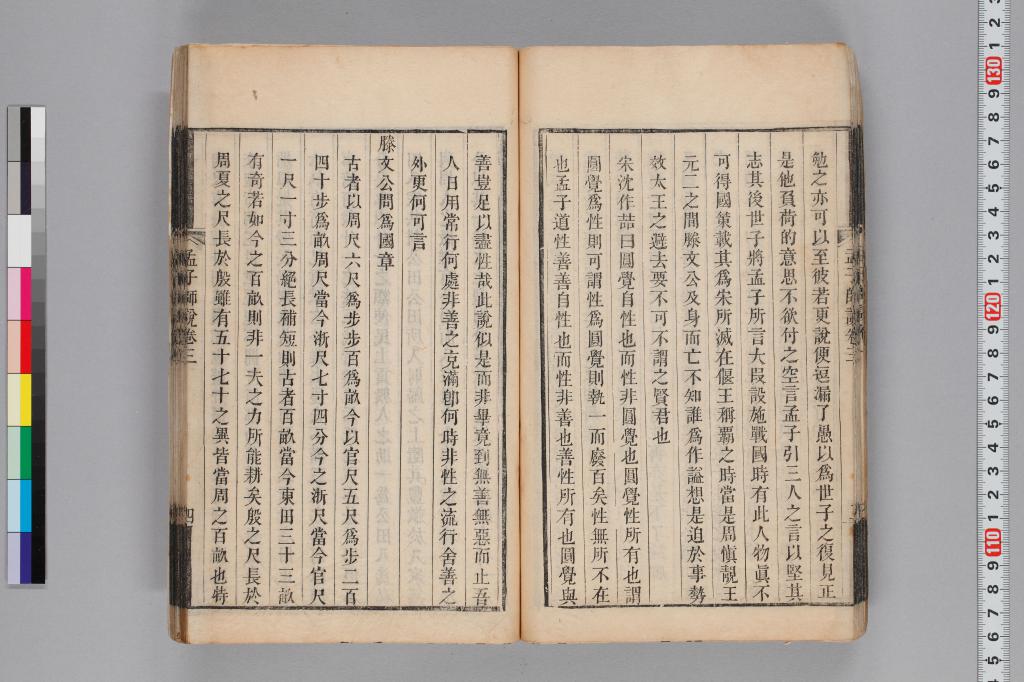 勉之亦可以至彼若更說便逗漏了愚以爲世子之復見正
是他負荷的意思不欲付之空言孟子引三人之言以堅其
志其後世子將孟子所言大段設施戰國時有此人物眞不
可得國策載其爲宋所滅在偃王稱覇之時當是周愼靚王
元二之間滕文公及身而亡不知誰爲作謚想是迫於事勢
效太王之遊去要不可不謂之賢君也
宋沈作喆曰圓覺自性也而性非圓覺也圓覺性所有也謂
圓覺爲性則可謂性爲圓覺則執一而廢百矣性無所不在
也孟子道性善善自性也而性非善也善性所有也圓覺與
善豈足以盡性哉此說似是而非畢竟到無善無惡而止吾
人日用常行何處非善之充滿卽何時非性之流行舍善之
外更何可言
滕文公問爲國章
古者以周尺六尺爲步步百爲畝今以官尺五尺爲步二百
四十步爲畝周尺當今浙尺七寸四分今之浙尺當今官尺
一尺一寸三分絕長補短則古者百畝當今東田三十三畝
有奇若如今之百畝則非一夫之力所能耕矣殷之尺長於
周夏之尺長於殷雖有五十七十之異皆當周之百畝也特
孟子師說卷三
四